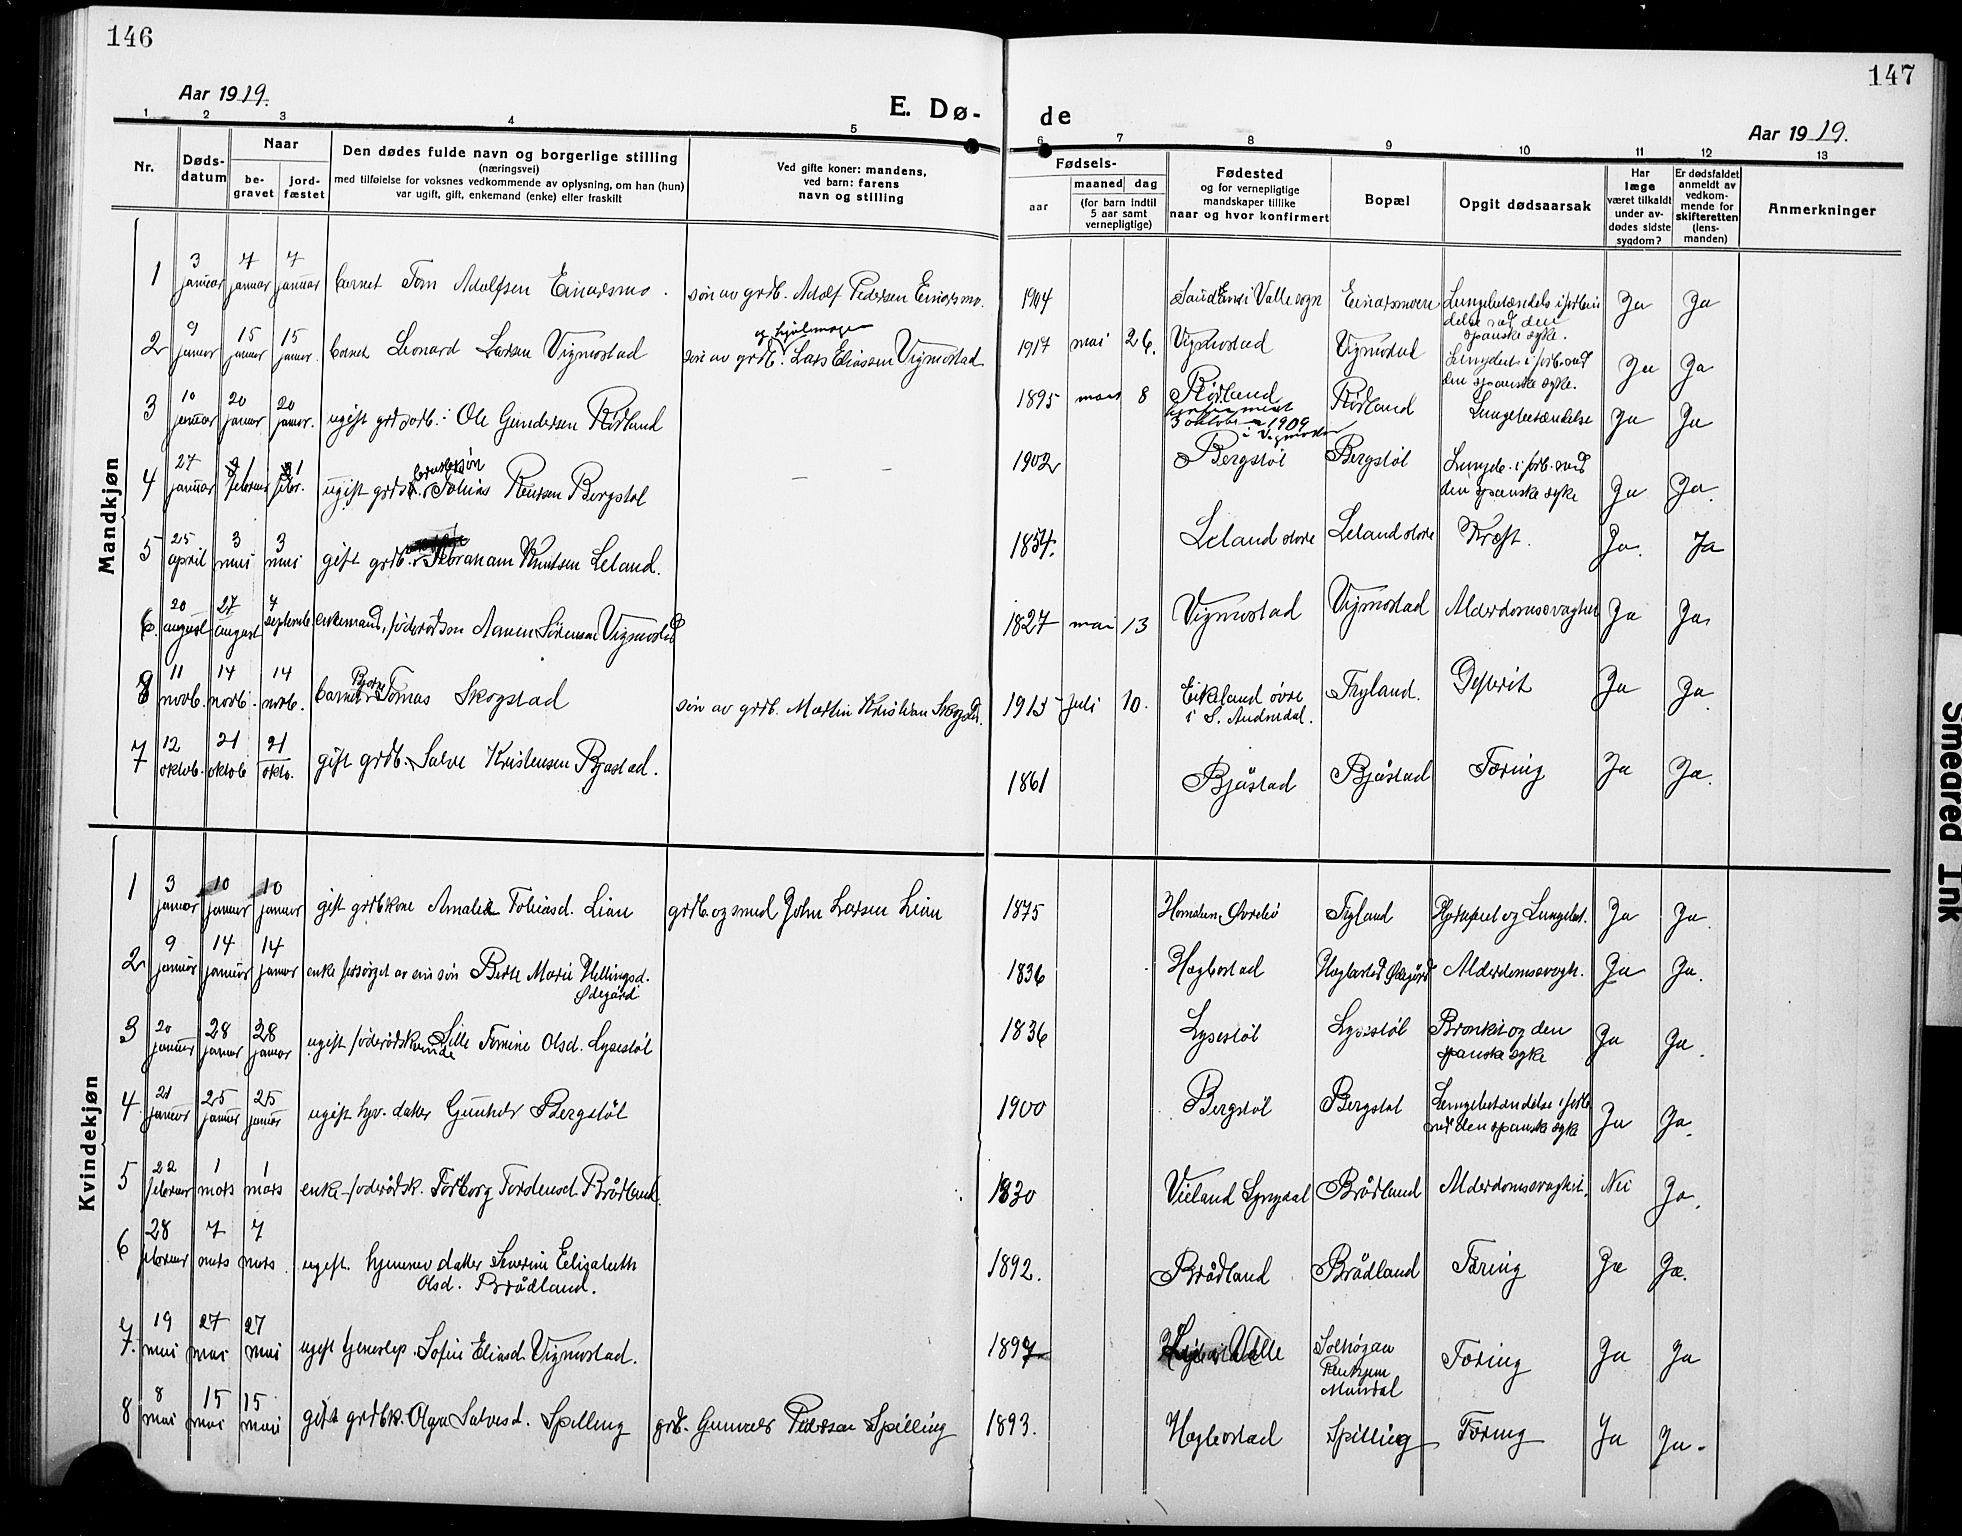 146
Aar 1919.
E. Dø-
1 2 3 4 5
Nr.
Døds-
datum
Naar
be-
gravet
jord-
fæstet
Den dødes fulde navn og borgerlige stilling
(næringsvei)
med tilføielse for voksnes vedkommende av oplysning, om han (hun)
var ugift, gift, enkemand (enke) eller fraskilt
Ved gifte koner: mandens,
ved barn: farens
navn og stilling
Mandkjøn
1 3 januar 7 januar 7 januar barnet Tom Adolfsen Einarsmo. søn av grdb. Adolf Pedersen Einarsmo.
og hjulmager
2 9 januar 15 januar 15 januar. barnet Leonard Larsen Vigmostad søn av grdb. Lars Eliassen Vigmostad
3 10 januar 20 januar 20 januar. ugift grdsarb. Ole Gundersen Rødland
4 27 januar 1 februar 1 febr. ugift Tobias Bergstøl
5 25 april 3 mai 3 mai gift grdb. Abraham Knutsen Leland.
6 20 august 27 august 7 septemb enkemand, føderådsm Aanen Sørensen Vigmostad
8 11 novb. 14 novb. 14 novb. barnet Bjarne Tomas Skogstad søn av grdb. Martin Kristian Skogstad.
7 12 oktob. 21 oktob 21 oktb. gift grdb. Salve Kristensen Bjåstad.
Kvindekjøn
1 3 januar 10 januar 10 januar gift grdbkone Amalia Tobiasd. Lian grdb. og smed John Larsen Lian
2 9 januar 14 januar 14 januar enke forsørget av sin søn Berte Marie Hellingsd.
Ødegård
3 20 januar 28 januar 28 januar ugift føderådskvinde Sille Tomine Olsd. Lysestøl
4 21 januar 25 januar 25 januar ugift hjv. datter Gunhild Bergstøl
5 22 februar 1 mars 1 mars enke føderådsk. Torborg Tordensd Brådland.
6 28 februar 7 mars 7 mars. ugift hjemmev datter Severine Elisabeth
Olsd. Brådland.
7. 19 mai 27 mai 27 mai ugift Sofie Eliasd. Vigmostad.
8 8 mai 15 mai 15 mai gift grdbk. Olga Salvesd. Spilling grdb. Gunvald Pedersen Spilling
147
de
Aar 1919.
6 7 8 9 10 11 12 13
Fødsels-
aar
maaned dag
(for barn indtil
5 aar samt
vernepligtige)
Fødested
og for vernepligtige
mandskaper tillike
naar og hvor konfirmert
Bopæl
Opgit dødsaarsak
Har
læge
været tilkaldt
under av-
dødes sidste
sygdom?
Er dødsfaldet
anmeldt av
vedkom-
mende for
skifteretten
(lens-
manden)
Anmerkninger
1914 i Valle sogn Einarsmoen Lungebetændels i forbin
delse med den
spanske syke. Ja Ja
1917 mai 26. Vigmostad Vigmostad Lungebet. i forb. med
den spanske syke. Ja Ja
1895 mars 8 Rødland Rødland Lungebetændelse Ja Ja
3 oktober 1909
i Vigmostad
1902 Bergstøl Bergstøl Lungeb. i forb. med
den spanske syke Ja Ja.
1854. Leland store Leland store Kræft. Ja. Ja
1827 mai 13 Vigmostad Vigmostad Alderdomssvaghet Ja Ja.
1915 juli 10. Eikeland øvre
i S. Audnedal. Tryland. Difterit Ja Ja.
1861 Bjåstad Bjåstad Tæring Ja Ja.
1875 Øvrebø Tryland Hjertefeil og Lungebet. Ja Ja.
1836 Hægbostad Hægbostad Ødegård Alderdomssvagh. Ja Ja.
1836 Lysestøl Lysestøl Bronkit og den
spanske syke Ja Ja.
1900 Bergstøl Bergstøl Lungebetændelse i forb.
med den spanske syke Ja Ja.
1830 Vieland Lyngdal Brådland Alderdomssvaghet. Nei Ja.
1892. Brådland Brådland Tæring Ja Ja.
1897 Valle Solhøgda
Mandal Tæring Ja Ja
1893. Hægbostad Spilling Tæring Ja Ja.
Smeared Ink